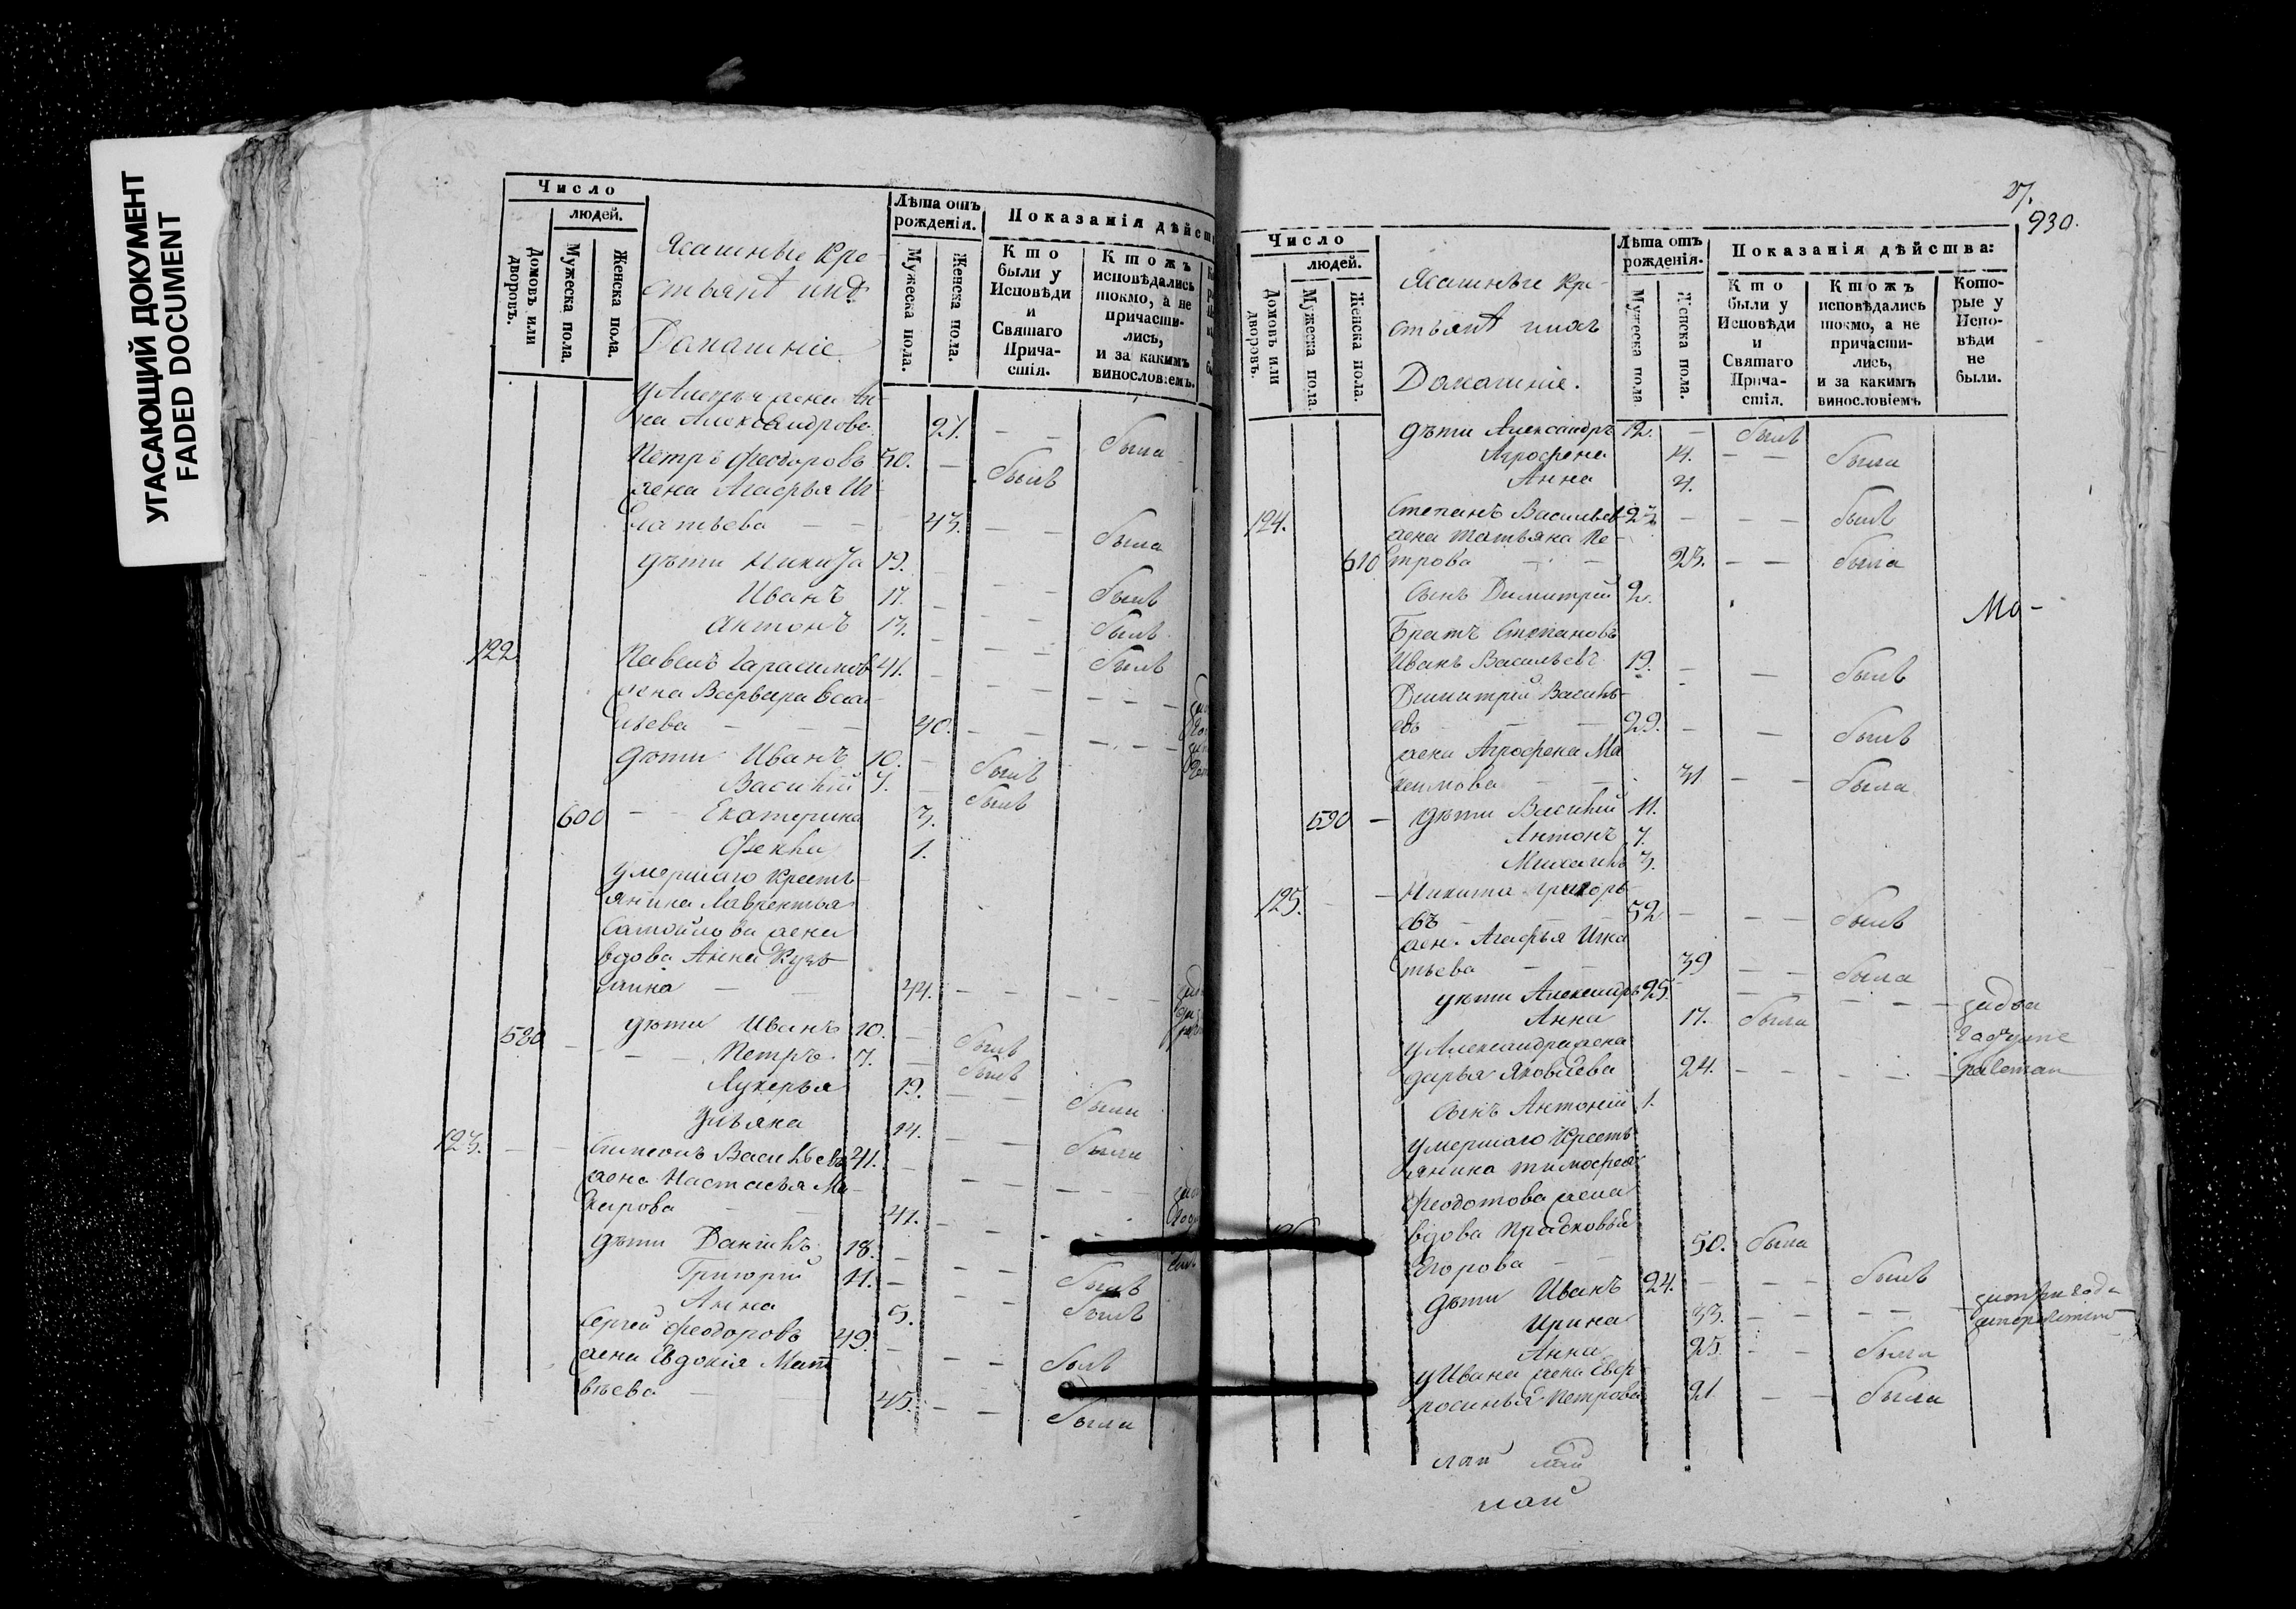 УГАСАЮЩИЙ ДОКУМЕНТ
FADED DOCUMENT
Число
людей.
Домовъ или дворовъ.
Мужеска пола.
Женска пола.
Ясашные Кре-
стьянѣ
Домашніе.
Лѣта отъ рожденія.
Мужеска пола.
Женска пола.
Показанія дѣйст
Кто были у Исповѣди и Святаго Причастія.
Ктожъ исповѣдались токмо, а не причастились, и за какимъ винословіемъ.
жена Ан-
на Александрова 27. — — была
Петръ Феодоровъ 50. — былъ
жена Агафья Иг-
натьева — — 43. — — была
дѣти Никита 19. — — былъ
Иванъ 17. — — былъ
Антонъ 13. — — былъ
122. Павелъ Гарасимов 41. — — —
жена Варвара Васи-
льева — — 40. — — —
дѣти Иванъ 10. — былъ
Василий 7. — былъ
600 — Екатерина 3.
Фекла 1.
умершаго Кресть-
янина Лаврентья
Самойлова жена
вдова Анна Кузь-
мина — 44. — — — — —
580 — дѣти Иванъ 10. — былъ
— — Петръ 7. — былъ
Лукерья 19. — — была
Ульяна 14. — — была
123. — — Симеонъ Васильевъ 41. — — — —
жена Настасья Ма-
карова — — 41. — — —
дѣти Данилъ 18. — — — былъ
Григорій 11. — — — былъ
Анна 5.
Сергей Феодоровъ 49. — — — былъ
жена Евдокія Мат-
вѣева — 45. — — была
27.
930.
Число
людей.
Домовъ или дворовъ.
Мужеска пола
Женска пола.
Ясашные Кре-
стьянѣ ихъ
Домашніе.
Лѣта отъ рожденія.
Мужеска пола
Женска пола.
Показанія дѣйства:
Кто были у Исповѣди и Святаго Причастія.
Ктожъ исповѣдались токмо, а не причастились, и за какимъ винословіемъ
Которые у Исповѣди не были.
дѣти Александръ 12. — былъ
Агрофена 14. — — была
Анна 4.
124. Степанъ Васильев 23. — — — былъ
жена Татьяна Пе-
610 трова — — 23. — — была
сынъ Димитрий 2.
Мо-
Братъ Степановъ
Иванъ Васильевъ 19. — — былъ
Димитрий Василь-
евъ — — 29. — — былъ
жена Агрофена Ма
ксимова — — 31 — — была
590 — дѣти Василий 11.
Антонъ 7.
Михаилъ 3.
125. — — Никита Григорь-
евъ — — — 52 — — — былъ
жен. Агафья Игна
тьева — — 39 — — была
дѣти Александръ 25. — — — — — задва
Анна 17. была
года
у Александра жена
дарья Яковлева 24. — — — — —
сынъ Антоній 1.
умершаго Кресть
янина Тимофея
Феодотова жена
вдова Прасковья
Егорова — 50. была
дѣти Иванъ 24. — — — былъ
Ирина 33. — — — — затри года
Анна 25. — — была
у Ивана жена Евф
росинья Петрова 21 — — была